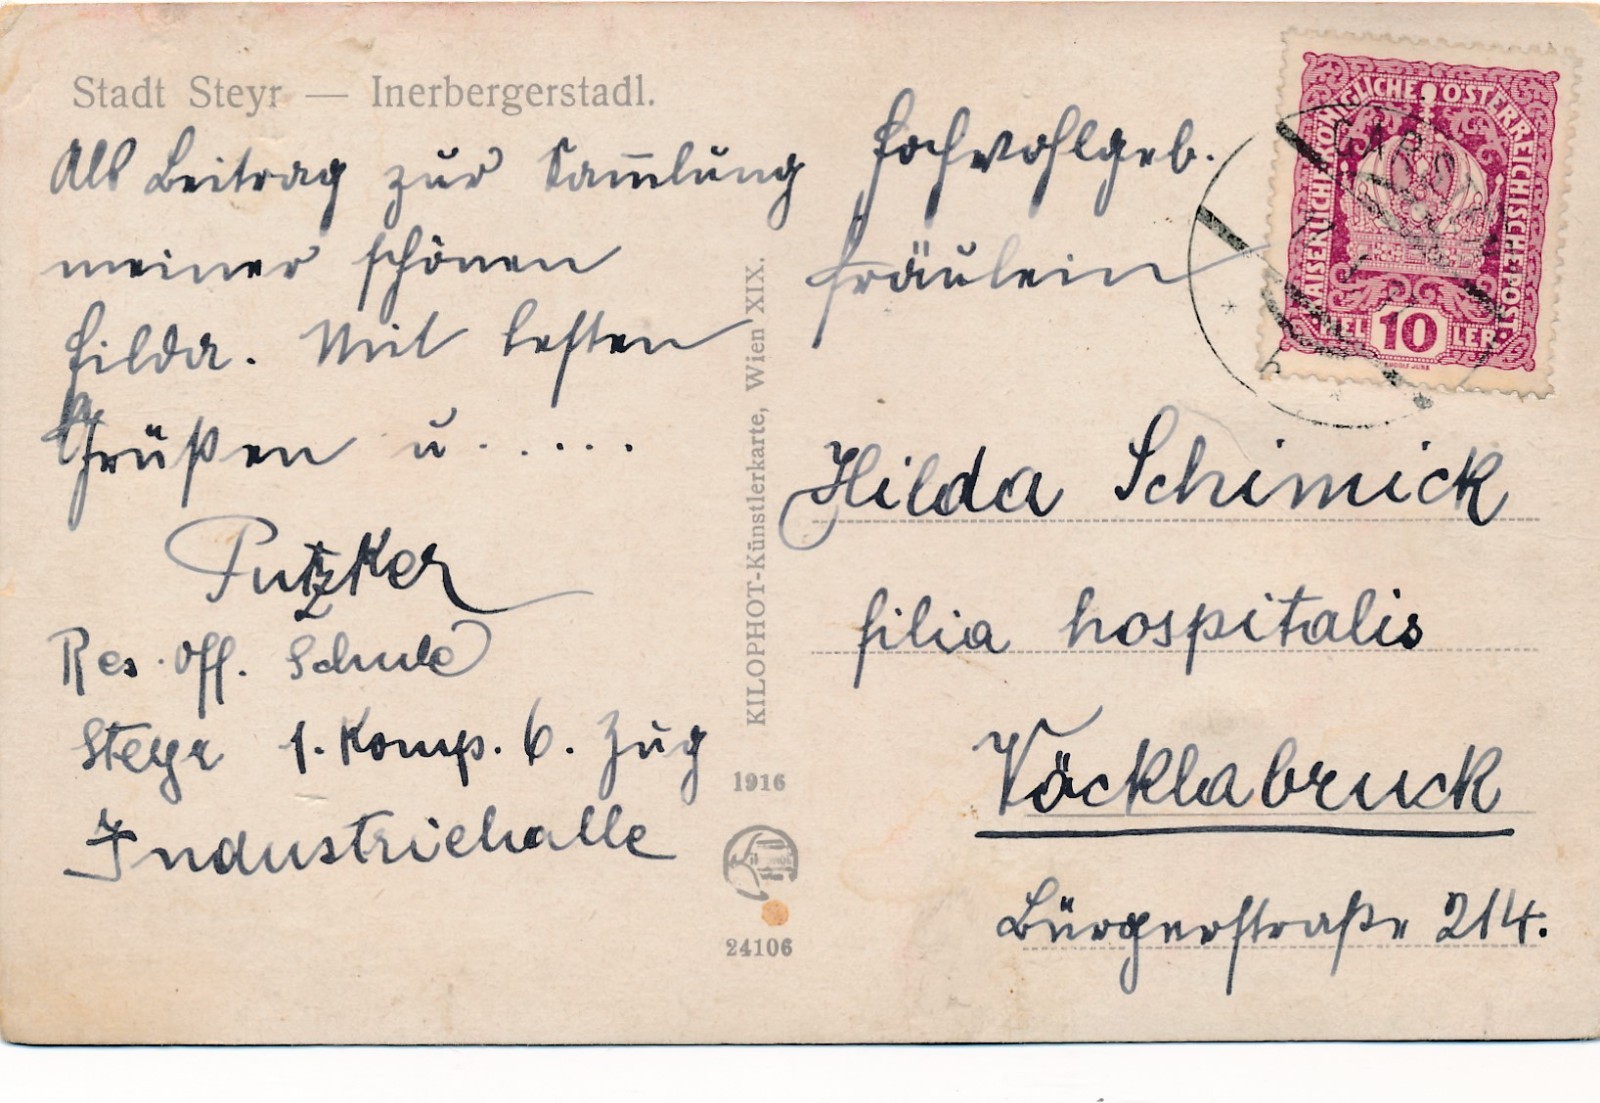 Stadt Steyr — Inerbergerstadl.
Als Beitrag zur Sam̅lung
meiner schönen
Hilda. Mit besten
Grüßen u. . . . .
Putzker
Res. Off. Schule
Steyr 1. Komp. 6. Zug
Industriehalle
KILOPHOT-Künstlerkarte, Wien XIX.
1916
24106
Hochwohlgeb.
Fräulein
Hilda Schimick
filia hospitalis
Vöcklabruck
Bürgerstraße 214.
KAISERLICHE KÖNIGLICHE ÖSTERREICHISCHE POST
HEL 10 LER
RUDOLF JUNK
GARSTEN